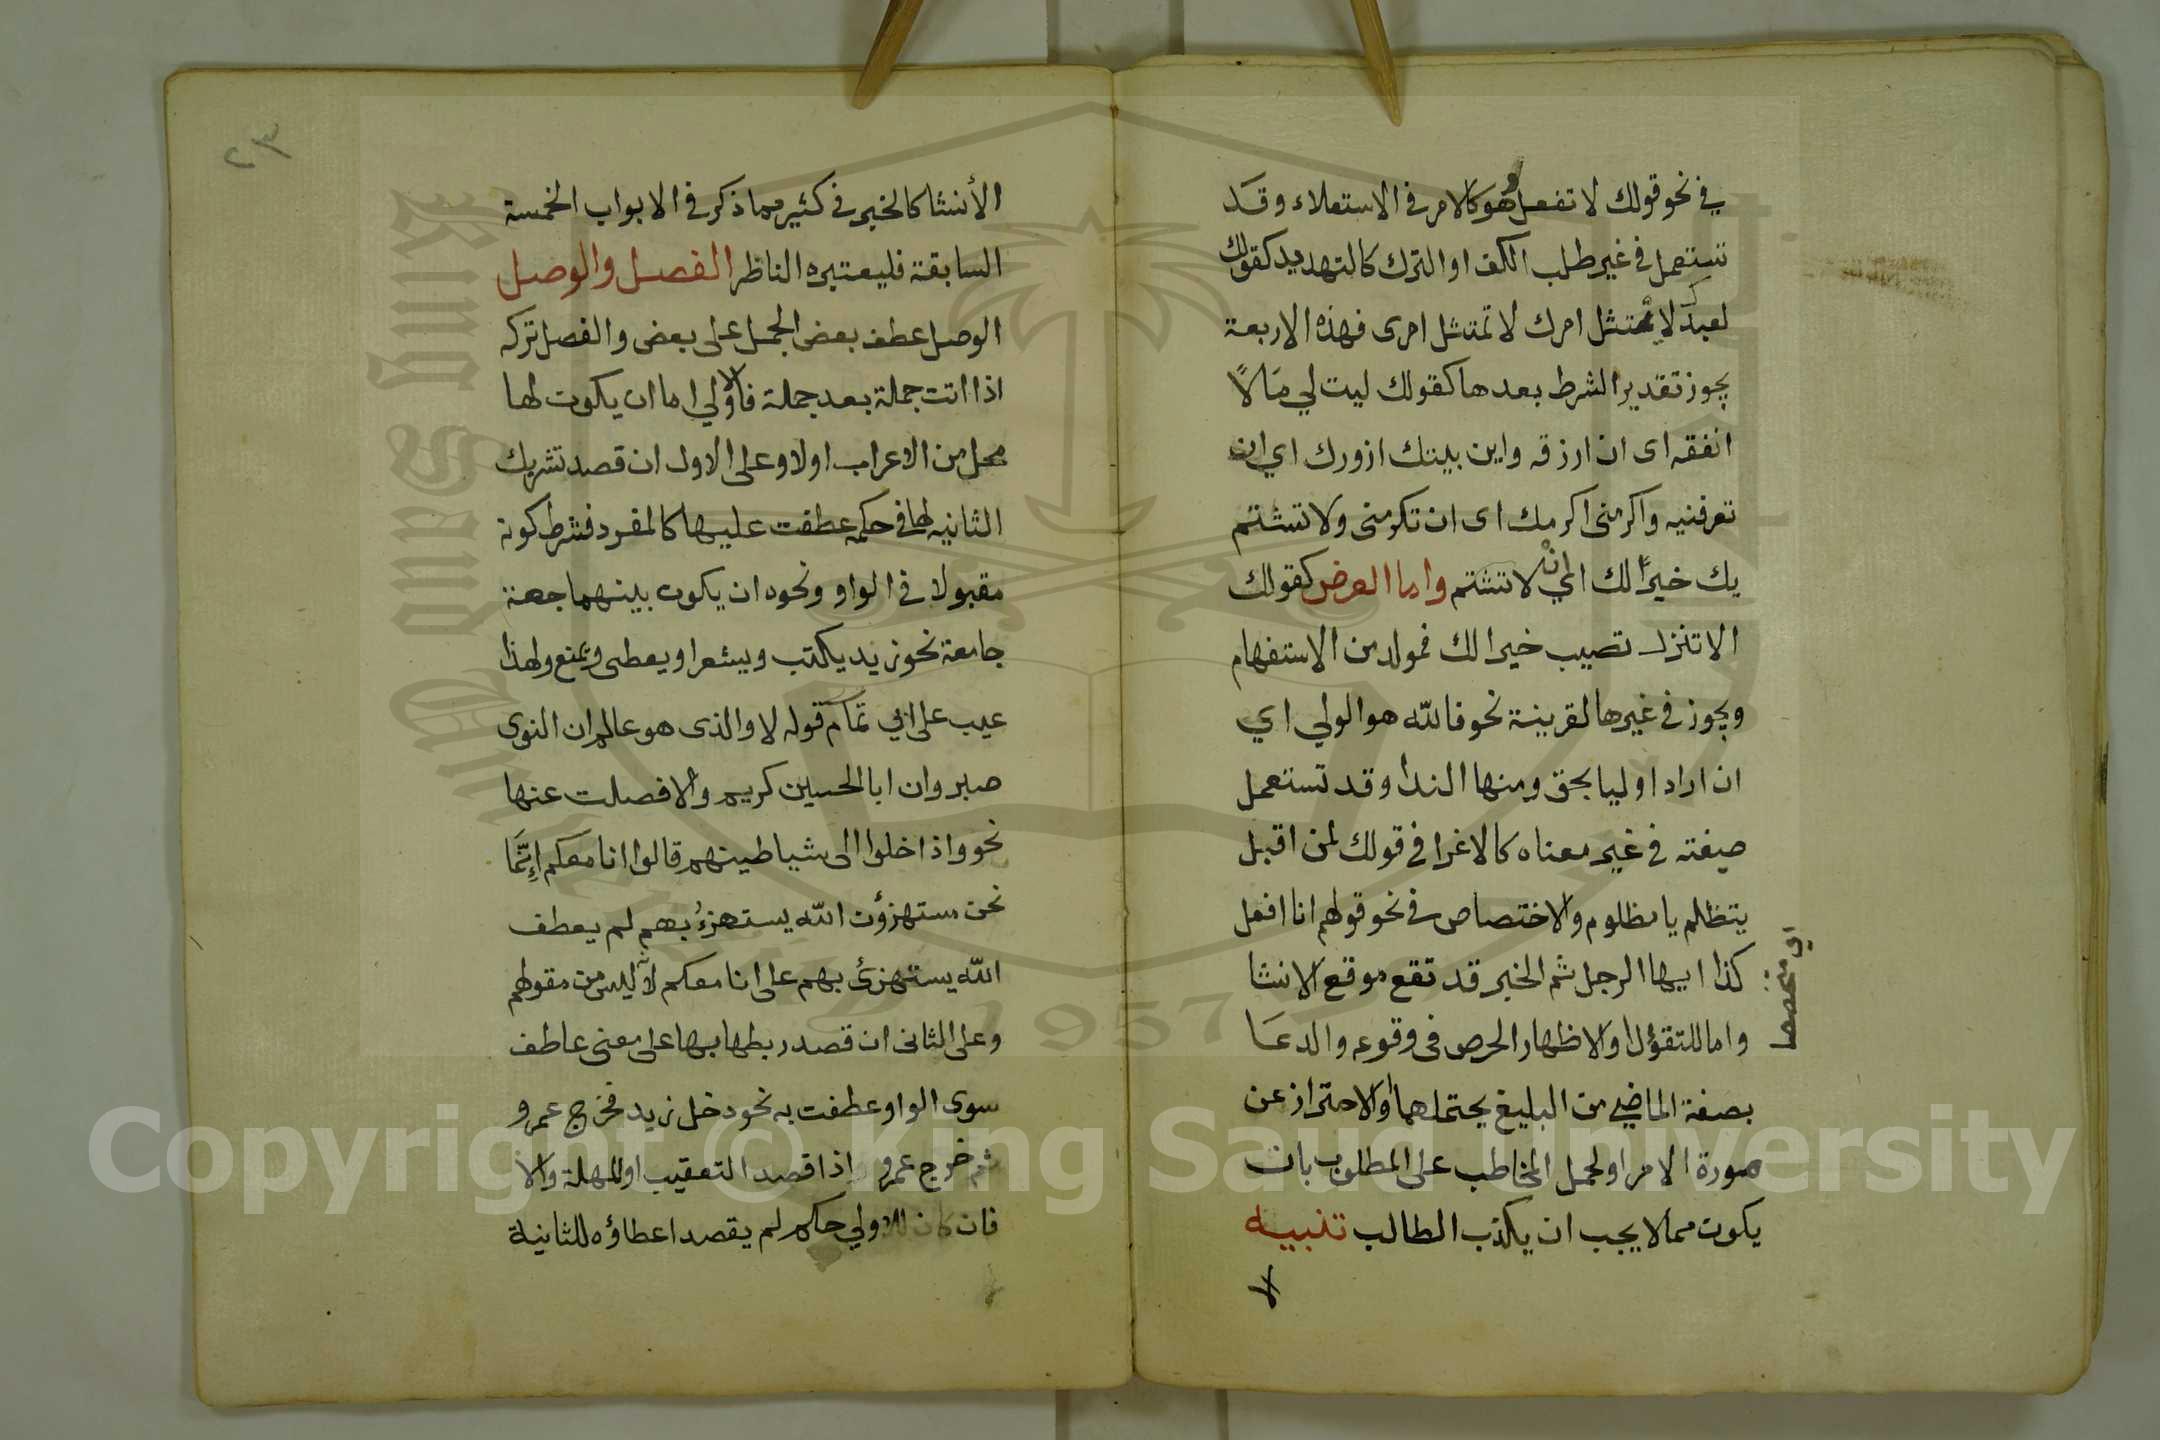 في نحو قولك لا تفعل وهو كالامر في الاستعلاء وقد
تستعمل في غير طلب الكف او الترك كالتهديد كقولك
لعبدك لا يمتثل امرك لا تمتثل امرى فهذه الاربعة
يجوز تقدير الشرط بعدها كقولك ليت لي مالاً
انفقه اى ان ارزقه واين بيتك ازورك اي ان
تعرفنيه واكرمنى اكرمك اى ان تكرمنى ولا تشتم
يك خيرًا لك اي ان لا تشتم واما العرض كقولك
الا تنزل تصيب خيرا لك فمولد من الاستفهام
ويجوز في غيرها لقرينة نحو فالله هو الولي اي
ان اراد اوليا بحق ومنها الندا وقد تستعمل
صيغته في غير معناه كالاغرا في قولك لمن اقبل
يتظلم يا مظلوم والاختصاص في نحو قولهم انا افعل
كذا ايها الرجل ثم الخبر قد تقع موقع الانشا
اي متخصصا
واما للتفؤل او لاظهار الحرص فى وقوعه والدعا
بصغة الماضي من البليغ يحتملهما او لاحتراز عن
صورة الامر او لحمل المخاطب على المطلوب بان
يكون ممن لا يجب ان يكذب الطالب تنبيه
لا
٢٣
الأنشا كالخبر في كثير مما ذكر في الابواب الخمسة
السابقة فليعتبره الناظر الفصل والوصل
الوصل عطف بعض الجمل على بعض والفصل تركه
اذا اتت جملة بعد جملة فالاولي اما ان يكون لها
محل من الاعراب اولا وعلى الاول ان قصد تشريك
الثانيه لها في حكمه عطفت عليها كالمفرد فشرط كونه
مقبولا في الواو ونحوه ان يكون بينهما جهة
جامعة نحو زيد يكتب ويشعر او يعطى ويمنع ولهذا
عيب على ابي تمام قوله لا والذى هو عالم ان النوى
صبر وان ابا الحسين كريم والا فصلت عنها
نحو واذا خلوا الى شياطينهم قالوا انا معكم إِنَّمَا
نحن مستهزؤن الله يستهزءُ بهم لم يعطف
الله يستهزئ بهم على انا معكم لانه ليس من مقولهم
وعلى الثانى ان قصد ربطها بها على معنى عاطف
سوى الواو عطفت به نحو دخل زيد فخرج عمرو
ثم خرج عمرو اذا قصد التعقيب او المهلة والا
فان كان للاولي حكم لم يقصد اعطاؤه للثانية
King Saud University
1957
Copyright © King Saud University